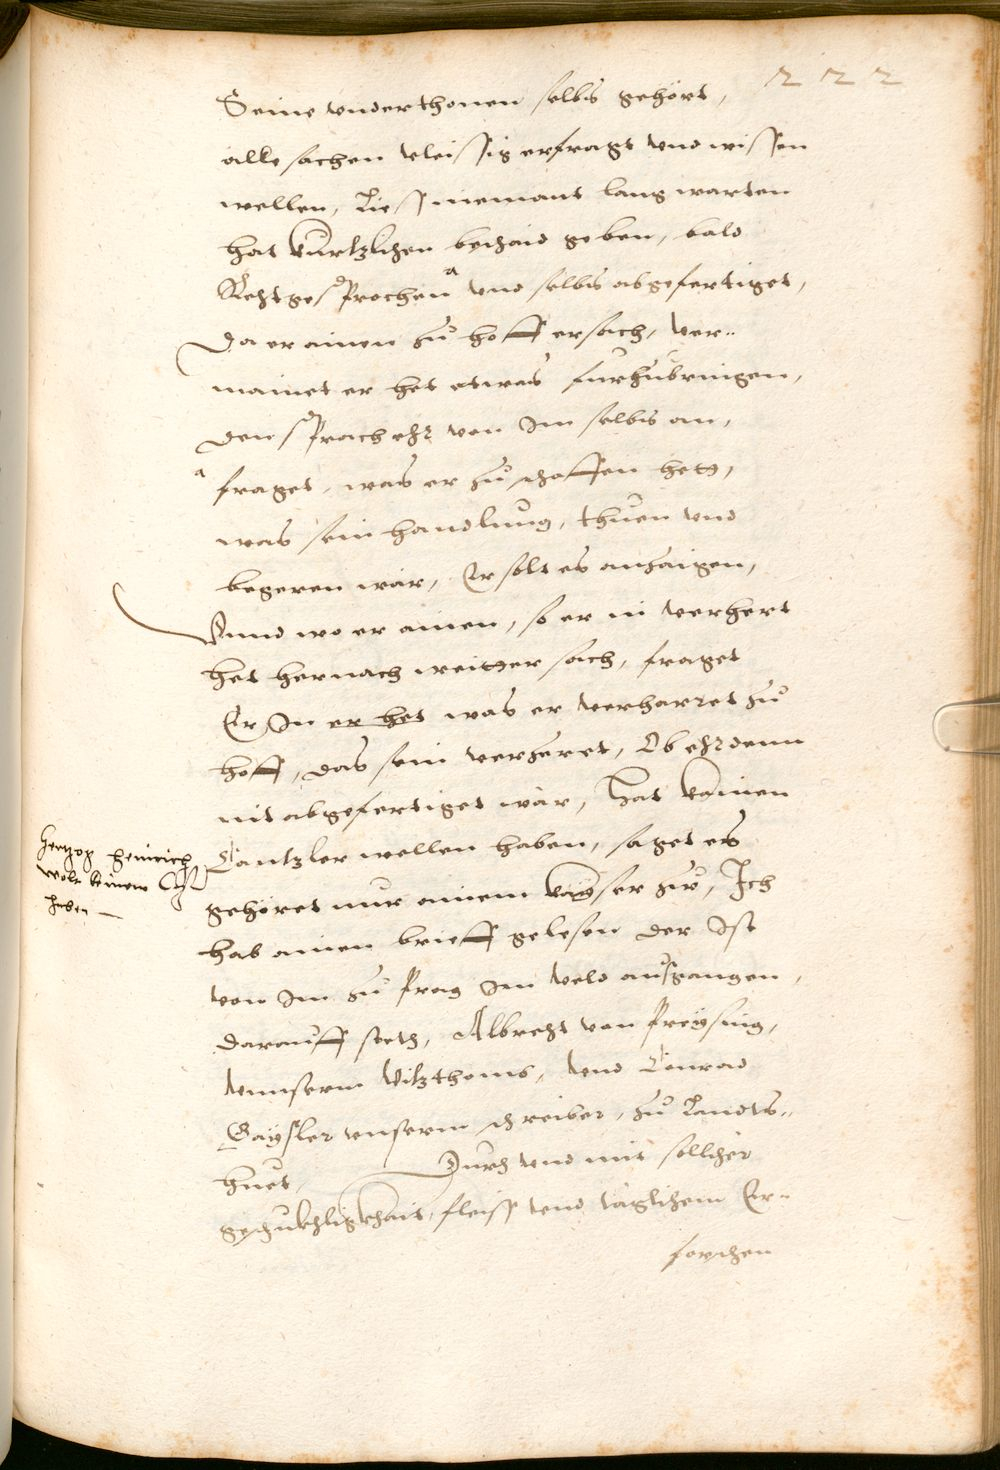 222
Seine vnderthonen selbs gehört,
alle sachen vleissig erfragt vnd wissen
wellen, Liess niemant lang warten
hat kurtzlichen beschaid geben, bald
Recht gesprochen vnd selbs abgefertiget,
Da er ainen zu hoff ersach, ver-
mainet er het etwas furzubringen,
den sprach ehr von Im selbs an,
fraget, was er zu schaffen hett,
was sein handlung, thuen vnd
begeren wär, Er solt es anzaigen,
Vnnd wo er ainen, so er in verhert
het hernach weitter sach, fraget
Er In er het was er verharret zu
hoff, das sein verzeret, Ob ehr denn
nit abgefertiget wär, Hat kainen
Cantzler wellen haben, saget es
gehöret nur ainem kayser zu, Ich
hab ainen brieff gelesen der Ist
von Im zu Prag Im veld ausgangen,
darauff steth, Albrecht von Preysing,
vnnserm Vitzthomb, vnd Conrad
Gaysler vnserm schreiber, zu Landts-
huet,
Durch vnd mit sollicher
geschukhligkhait, fleiss vnd täglichem Er-
forschen
Hertzog Heinrich
wolt keinen
haben